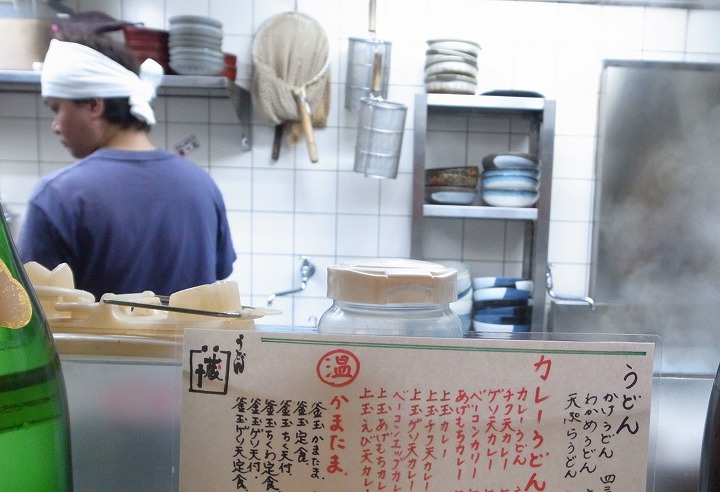 うどん
かけうどん 四三
わかめうどん
天ぷらうどん
カレーうどん
カレーうどん
チク天カレー
ゲソ天カレー
ベーコンカリー
あげもちカレー
上玉カレー
上玉チク天カレー
上玉ゲソ天カレー
ベーコンエッグカレ
上玉あげもちカレ
上玉えび天カレ
温
かまたま
釜玉かまたま
釜玉定食
釜玉ちく天付
釜玉ちくわ定食
釜玉ゲソ天付
釜玉ゲソ天定食
うどん
蔵